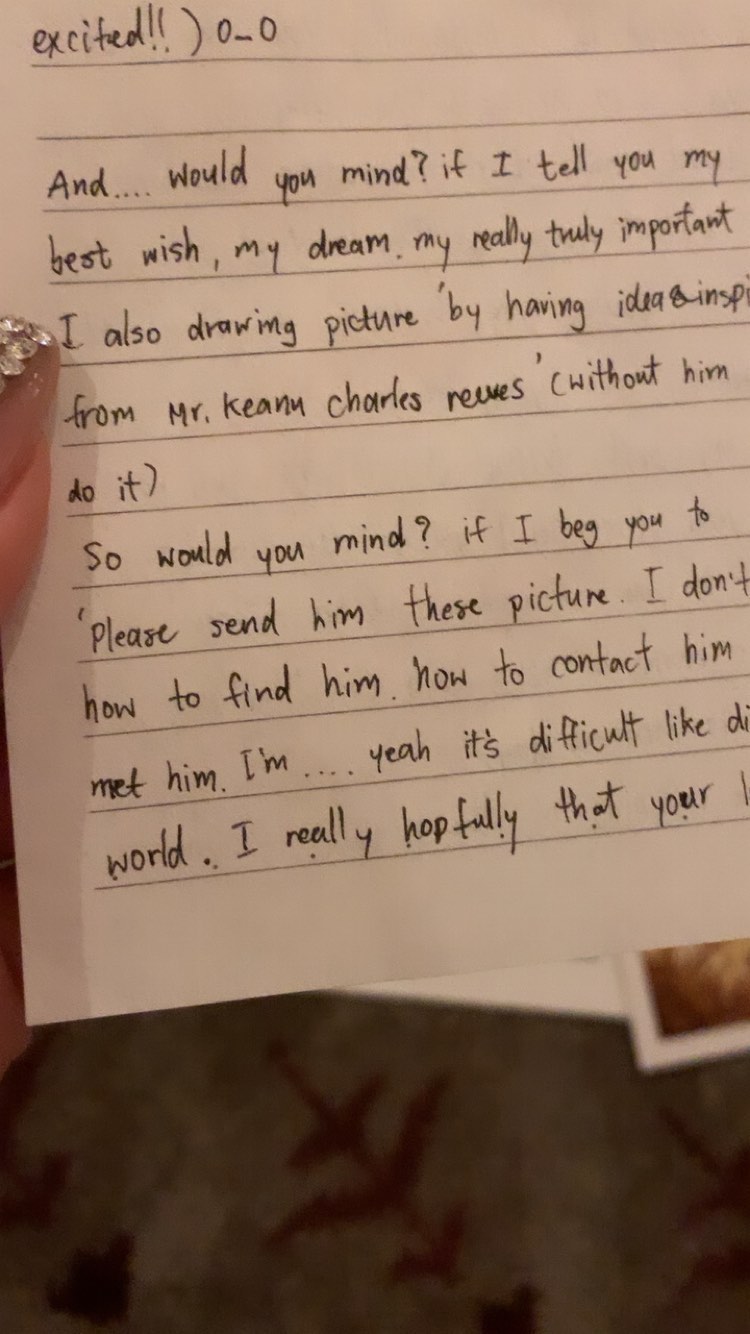 excited!! ) 0_0
And.... would you mind? if I tell you my
best wish, my dream. my really truly important
I also drawing picture 'by having idea&inspi
from Mr. Keanu charles reeves' (without him
do it)
So would you mind? if I beg you to
'Please send him these picture. I don't
how to find him. how to contact him
met him. I'm .... yeah it's difficult like di
world.. I really hopfully that your l